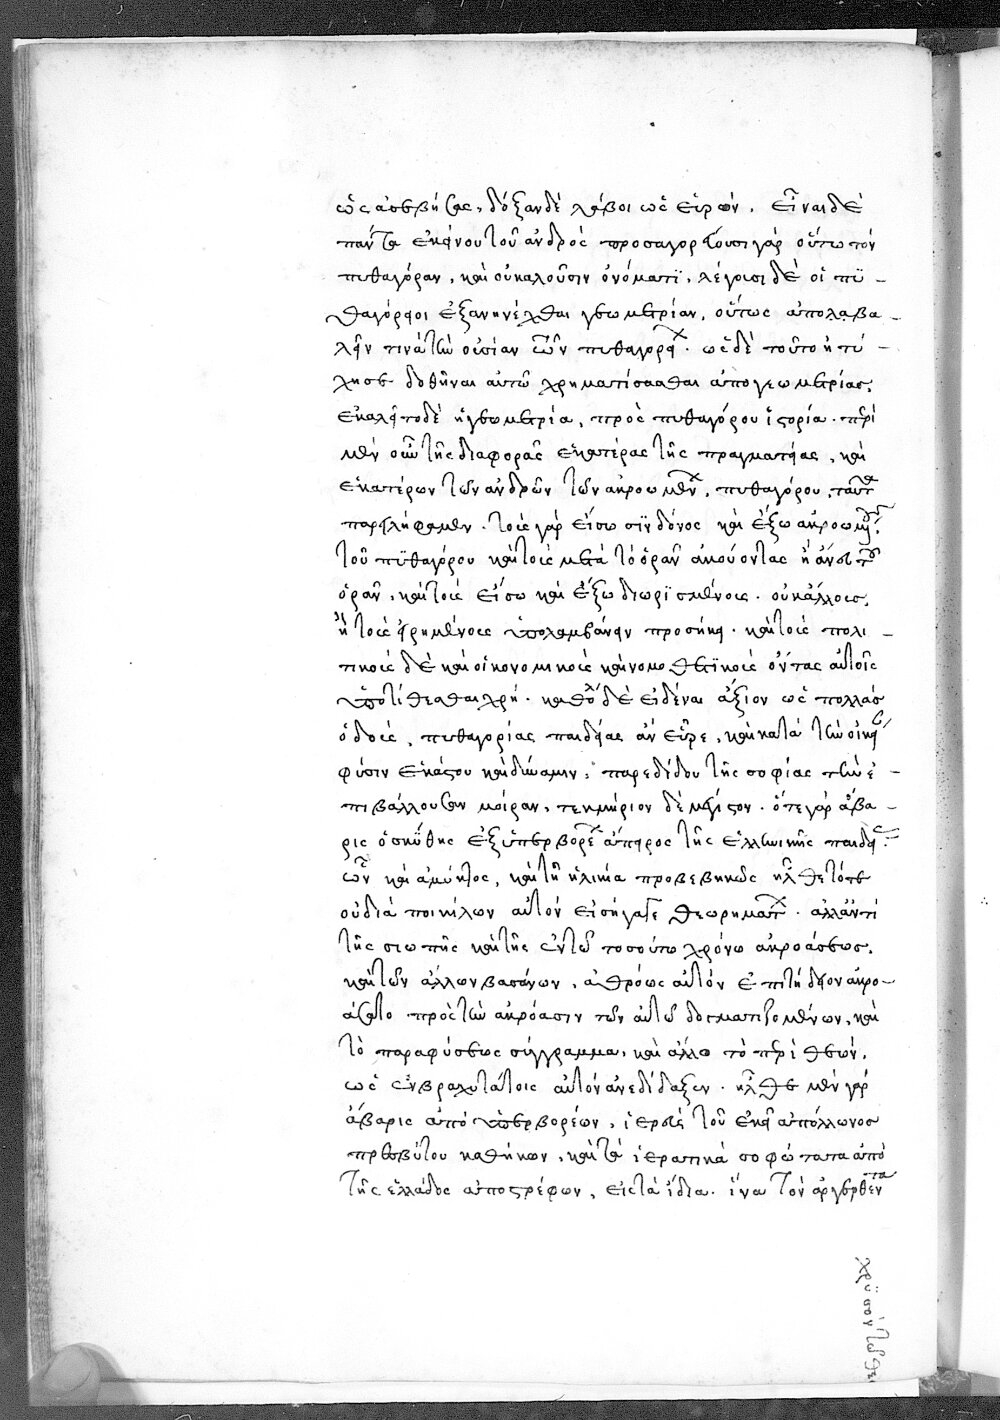 ὡς ἀσεβήσας, δόξαν δὲ λάβοι ὡς εὑρών. εἶναι δὲ
πάντα ἐκείνου τοῦ ἀνδρὸς προσαγορεύουσι γὰρ οὕτω τὸν
πυθαγόραν, καὶ οὐ καλοῦσιν ὀνόματι, λέγουσι δὲ οἱ πυ-
θαγόρειοι ἐξενηνέχθαι γεωμετρίαν, οὕτως ἀποβα-
λεῖν τινὰ τὴν οὐσίαν τῶν πυθαγορείων. ὡς δὲ τοῦτο ἠτύ-
χησε δοθῆναι αὐτῶ χρηματίσασθαι ἀπὸ γεωμετρίας.
ἐκαλεῖτο δὲ ἡ γεωμετρία, πρὸς πυθαγόρου ἱστορία. περὶ
μὲν οὖν τῆς διαφορᾶς ἑκατέρας τῆς πραγματείας, καὶ
ἑκατέρων τῶν ἀνδρῶν τῶν ἀκροωμένων, πυθαγόρου, ταῦτα
παρειλήφαμεν. τοὺς γὰρ εἴσω σινδόνος καὶ ἔξω ἀκροωμένους
τοῦ πυθαγόρου καὶ τοὺς μετὰ τὸ ὁρᾶν ἀκούοντας ἢ ἄνευ τοῦ
ὁρᾶν, καὶ τοὺς εἴσω καὶ ἔξω διωρισμένους. οὐκ ἄλλους,
ἢ τοὺς εἰρημένους ὑπολαμβάνειν προσήκει. καὶ τοὺς πολι-
τικοὺς δὲ καὶ οἰκονομικοὺς καὶ νομοθετικοὺς ὄντας αὐτοῖς
ὑποτίθεσθαι χρή. καθόλου δὲ εἰδέναι ἄξιον ὡς πολλὰς
ὁδοὺς, πυθαγορίας παιδείας ἀνεῦρε, καὶ κατὰ τὴν οἰκείαν
φύσιν ἑκάστου καὶ δύναμιν, παρεδίδου τῆς σοφίας τὴν ἐ-
πιβάλλουσαν μοῖραν, τεκμήριον δὲ μέγιστον. ὅτε γὰρ ἄβα-
ρις ὁ σκύθης ἐξ ὑπερβορέων ἄπειρος τῆς ἑλληνικῆς παιδείας
ὢν καὶ ἀμύητος, καὶ τῆ ἡλικία προβεβηκὼς ἦλθε τότε
οὐ διὰ ποικίλων αὐτὸν εἰσήγαγε θεωρημάτων. ἀλλ' ἀντὶ
τῆς σιωπῆς καὶ τῆς ἐν τῶ τοσούτω χρόνω ἀκροάσεως,
καὶ τῶν ἄλλων βασάνων, ἀθρόως αὐτὸν ἐπιτήδειον ἀπειργ-
άσατο πρὸς τὴν ἀκρόασιν τῶν αὐτῶ δογματιζομένων, καὶ
τὸ περὶ φύσεως σύγγραμμα, καὶ ἄλλο τὸ περὶ θεῶν,
ὡς ἐν βραχυτάτοις αὐτὸν ἀνεδίδαξεν. ἦλθε μὲν γὰρ
ἄβαρις ἀπὸ ὑπερβορέων, ἱερεὺς τοῦ ἐκεῖ ἀπόλλωνος
πρεσβύτου καθήκων, καὶ τὰ ἱερατικὰ σοφώτατα ἀπὸ
τῆς ἑλλάδος ἀποστρέφων, εἰς τὰ ἴδια. ἵνα τὸν ἀγερθέντα
χρυσὸν τῶ θε